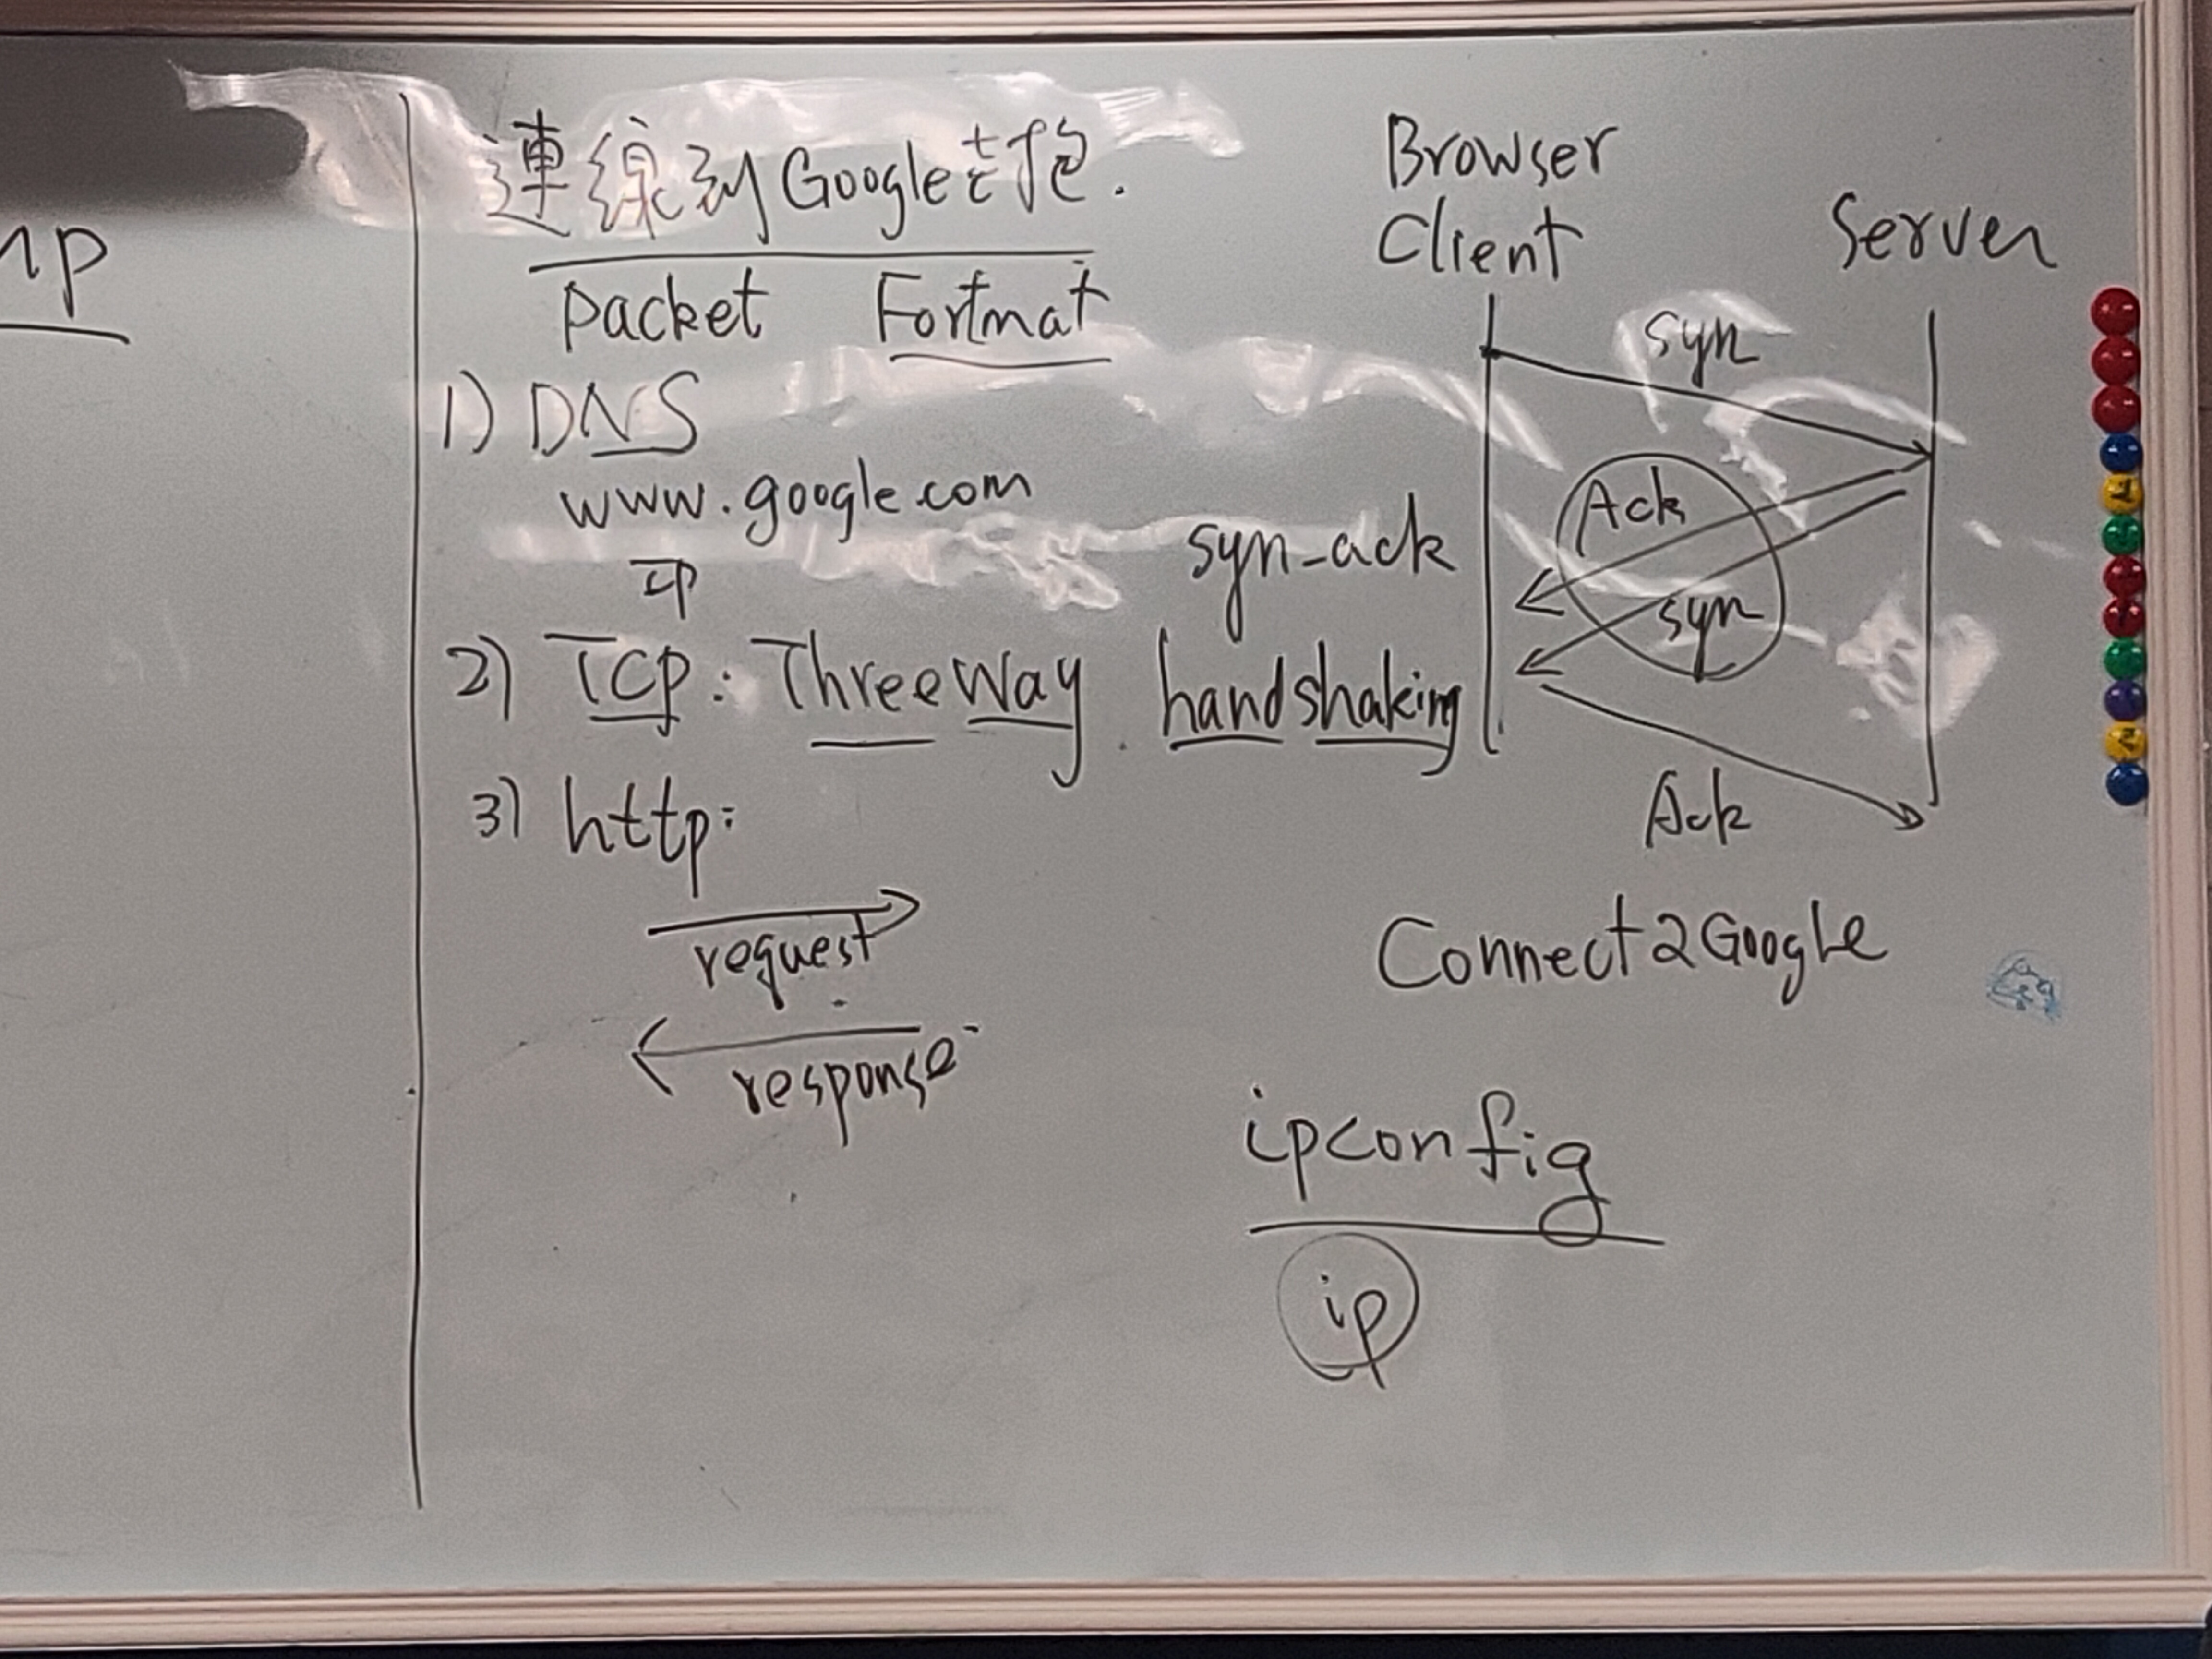 連線到Google去抱.
packet Fortmat
1) DNS
www.google.com
IP
2) TCP: Three way handshaking
3) http:
request
response
Browser
Client
Server
syn
Ack
syn
syn-ack
Ack
Connect2Google
ipconfig
ip